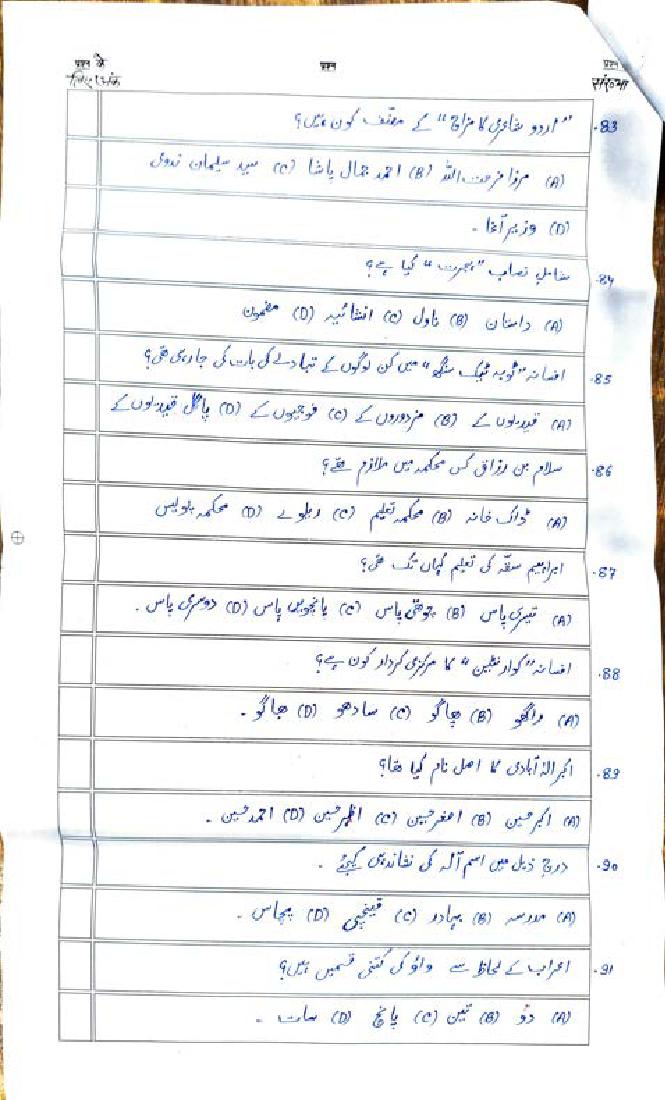 प्रश्न के
प्रश्न
प्रश्न
संख्या
83. "اردو شاعری کا مزاج" کے مصنف کون ہیں؟
(A) مرزا فرحت اللہ (B) احمد جمال پاشا (C) سید سلیمان ندوی
(D) وزیر آغا ۔
84. شامل نصاب "ہجرت" کیا ہے؟
(A) داستان (B) ناول (C) انشائیہ (D) مضمون
85. افسانہ "ٹوبہ ٹیک سنگھ" میں کن لوگوں کے تبادلے کی بات کی جا رہی تھی؟
(A) قیدیوں کے (B) مزدوروں کے (C) فوجیوں کے (D) پاگل قیدیوں کے
86. سلام بن رزاق کس محکمہ میں ملازم تھے؟
(A) ڈاک خانہ (B) محکمہ تعلیم (C) ریلوے (D) محکمہ پولیس
87. ابراہیم سقہ کی تعلیم کہاں تک تھی؟
(A) تیسری پاس (B) چوتھی پاس (C) پانچویں پاس (D) دوسری پاس ۔
88. افسانہ "کوارنٹین" کا مرکزی کردار کون ہے؟
(A) راگھو (B) بھاگو (C) سادھو (D) جاگو ۔
89. اکبر الہ آبادی کا اصل نام کیا تھا؟
(A) اکبر حسین (B) اصغر حسین (C) اظہر حسین (D) احمد حسین ۔
90. درج ذیل میں اسم آلہ کی نشاندہی کیجئے ۔
(A) مدرسہ (B) بہادر (C) قینچی (D) پچاس ۔
91. اعراب کے لحاظ سے واؤ کی کتنی قسمیں ہیں؟
(A) دو (B) تین (C) پانچ (D) سات ۔